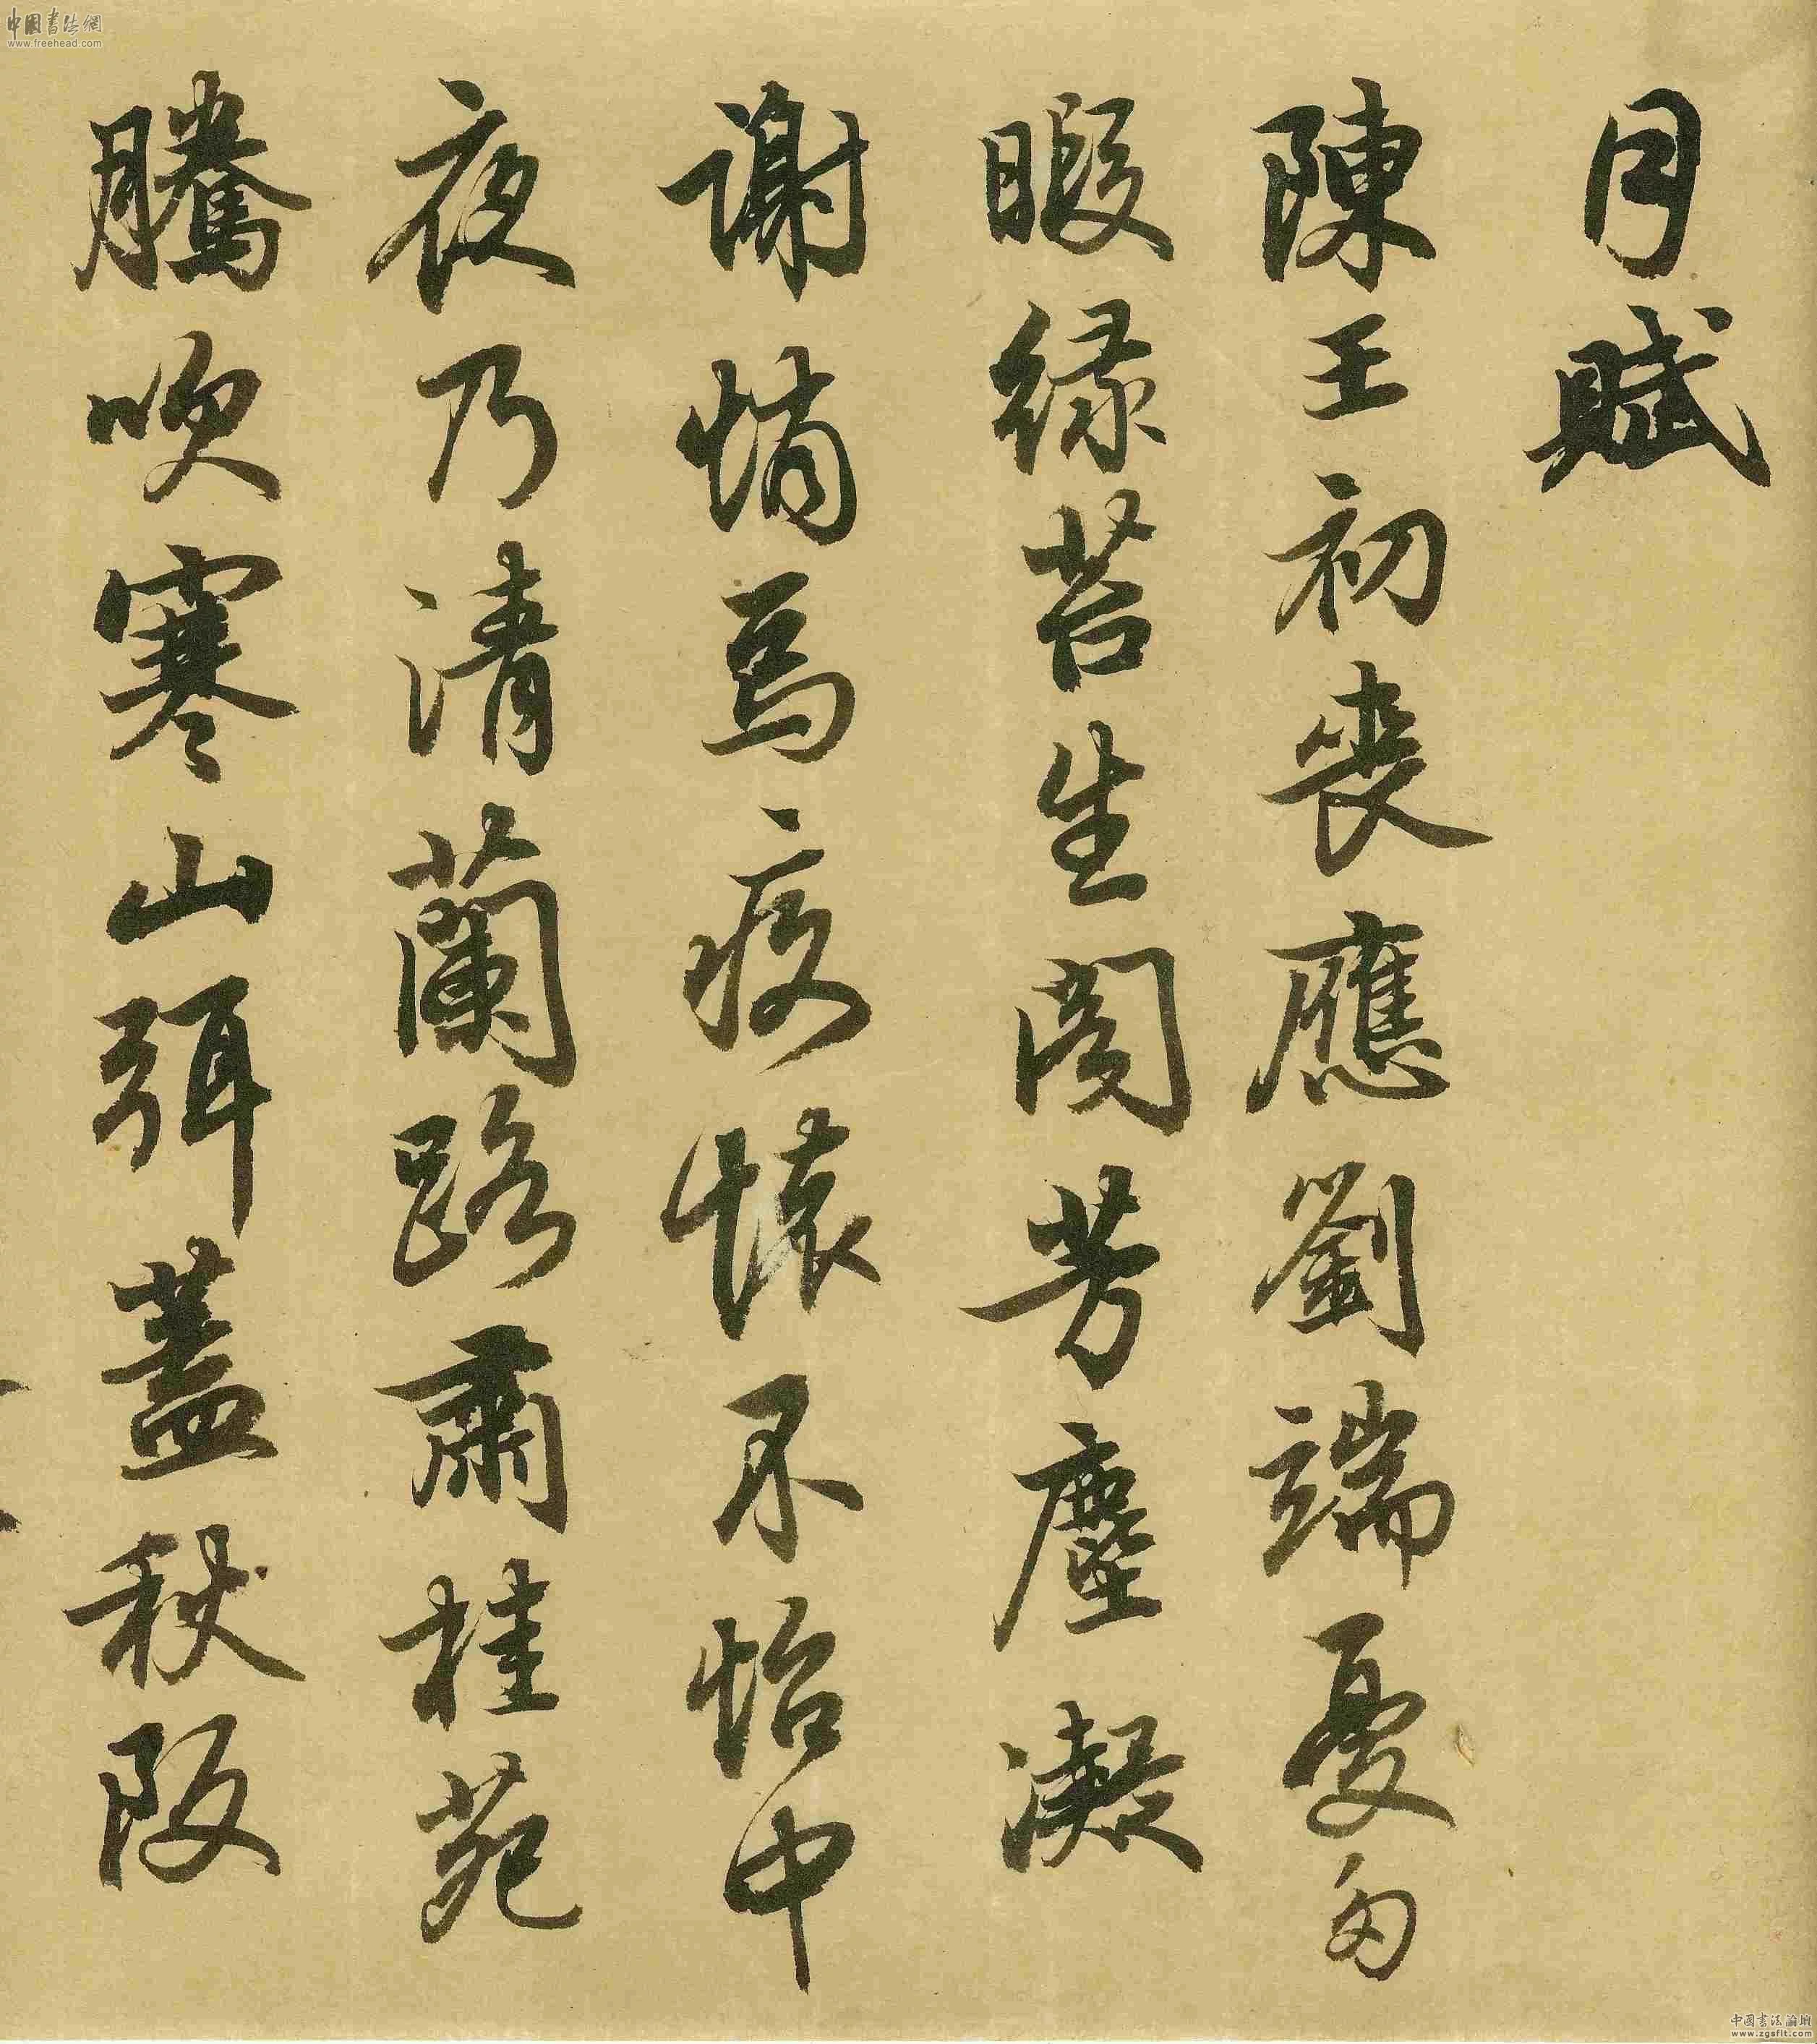 月賦
陳王初喪應劉端憂多
暇緑苔生閣芳塵凝
謝悄焉疚懷不怡中
夜乃清蘭路肅桂苑
騰吹寒山弭蓋秋阪
中國書法網
www.freehead.com
中國書法論壇
www.zgsflt.com